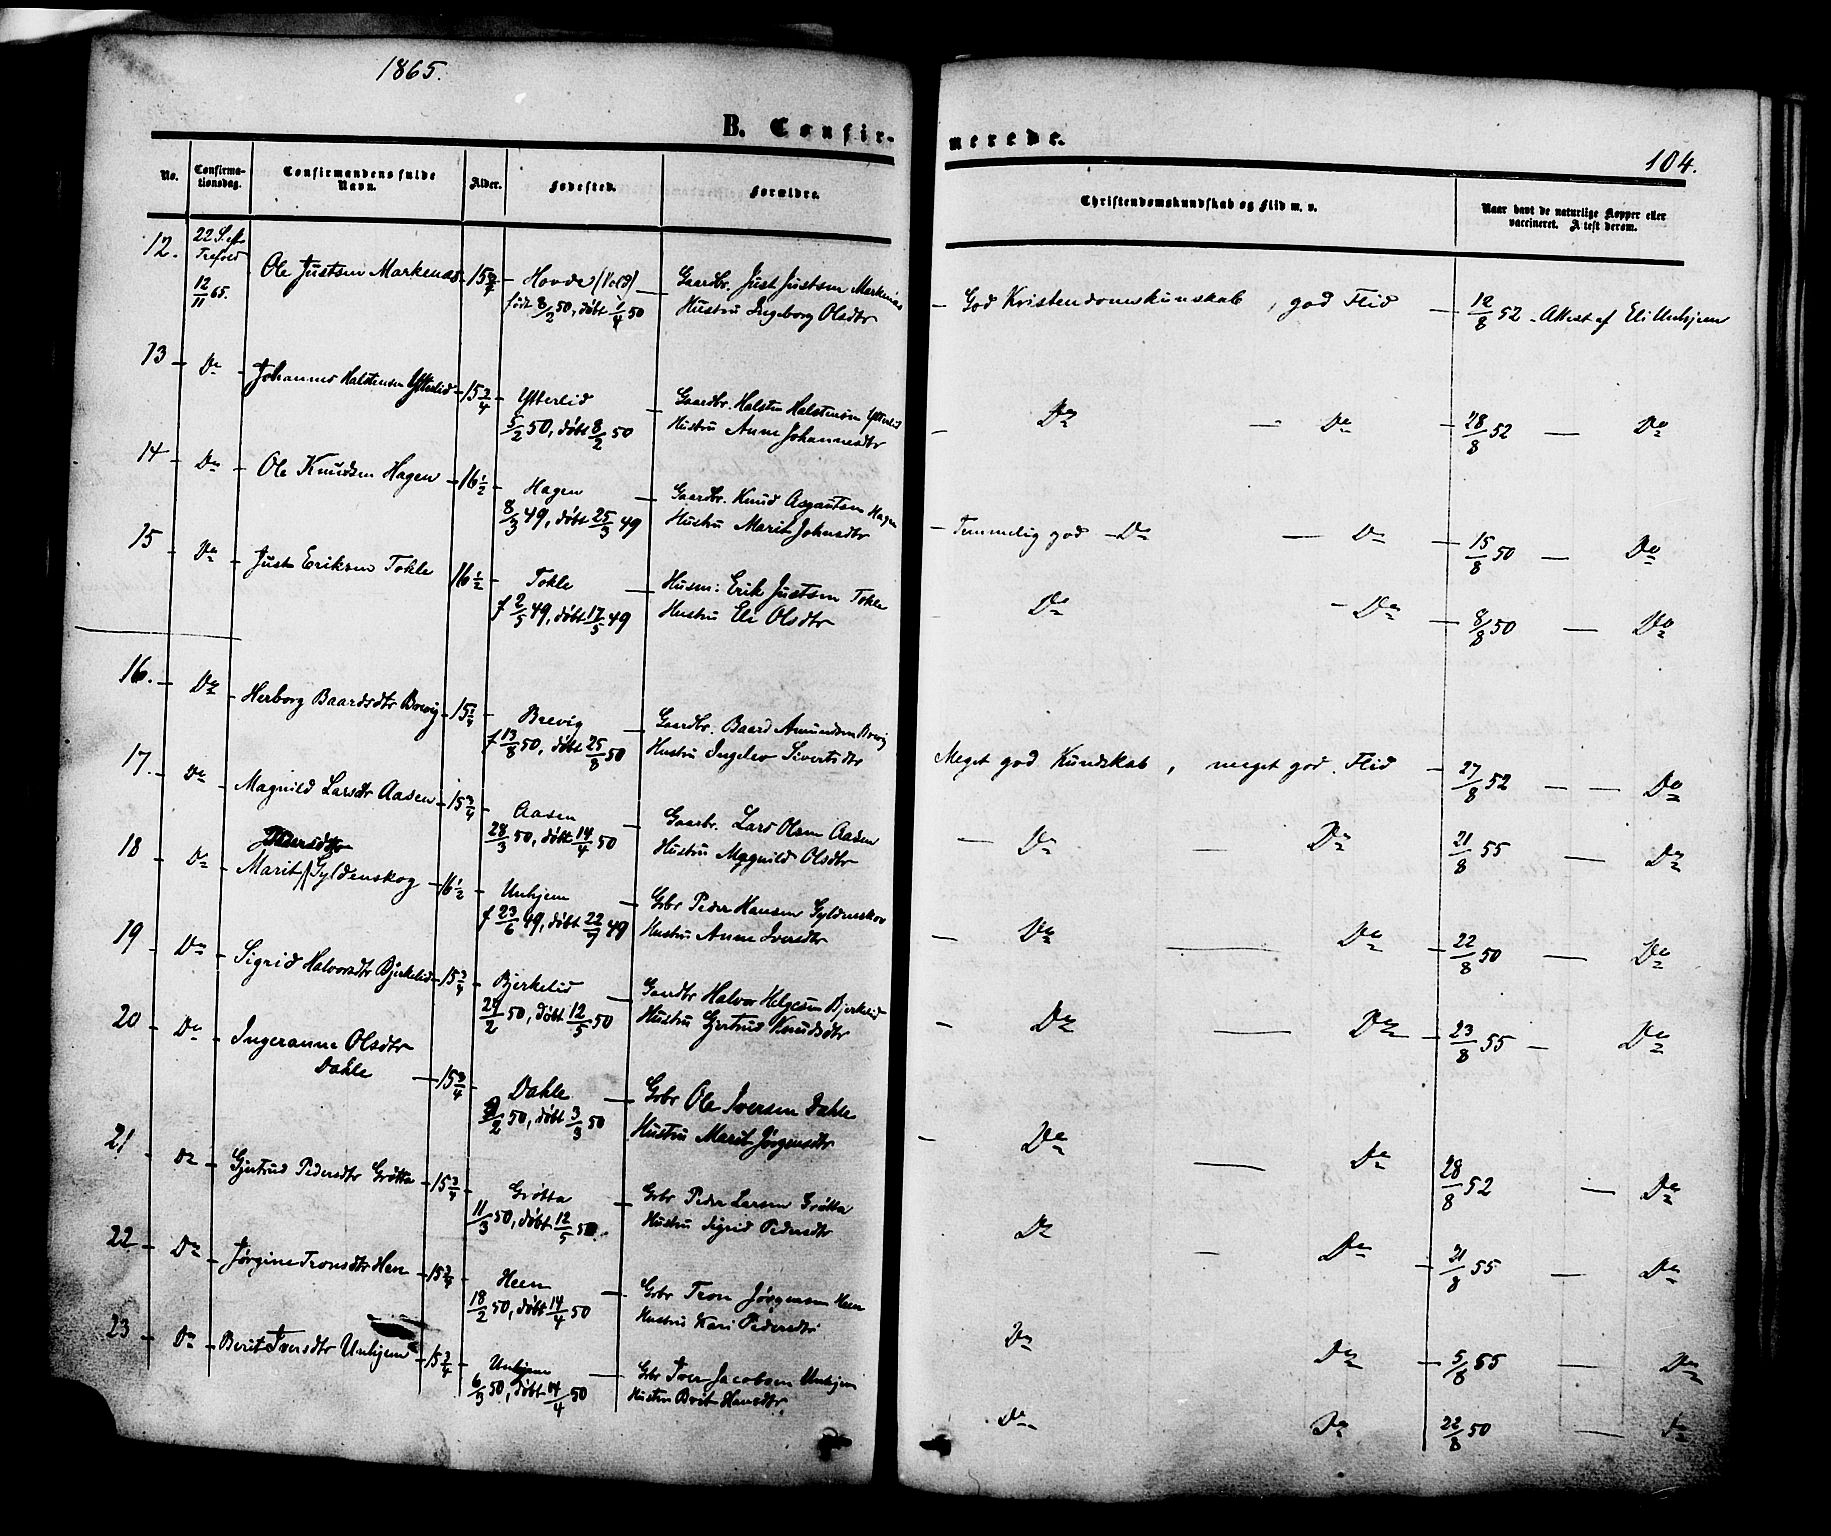 1865.
B. Confirmerede.
104.
No. Confirmationsdag. Confirmandens fulde Navn. Alder. Fødested. Forældre. Christendomskundskab og Flid m. v. Naar havt de naturlige Kopper eller vaccineret. Attest derom.
12. 22 S. eft. Trefold. 12/11 65. Ole Justsen Markenæs 15 3/4 Hovde (Vold) født 8/2 50, døbt 1/4 50 Gaardbr. Just Justsen Markenæs Hustru Ingeborg Olsdtr God Kristendomskunskab, god Flid 12/8 52 - Attest af Eli Unhjem
13 Do Johannes Halstensen Ytterlid 15 3/4 Ytterlid 5/2 50, døbt 8/2 50 Gaardbr. Halsten Halstensen Ytterlid Hustru Anne Johannesdtr Do Do 28/8 52 Do
14 Do Ole Knudsen Hagen 16 1/2 Hagen 8/3 49, døbt 25/3 49 Gaardbr. Knud Asgautsen Hagen Hustru Marit Johnsdtr Temmelig god Do Do 15/8 50 Do
15 Do Just Eriksen Tokle 16 1/2 Tokle f 2/5 49, døbt 17/5 49 Husm: Erik Justsen Tokle Hustru Eli Olsdtr Do Do 8/8 50 Do
16. Do Herborg Baardsdtr Brevig 15 1/4 Brevig f 13/8 50, døbt 25/8 50 Gaardbr. Baard Amundsen Brevig Hustru Ingelev Sivertsdtr Meget god Kundskab, meget god Flid 27/8 52 Do
17. Do Magnild Larsdtr Aasen 15 3/4 Aasen 28/3 50, døbt 14/4 50 Gaarbr. Lars Olsen Aasen Hustru Magnild Olsdtr Do Do 21/8 55 Do
18 Do Marit Pedersdtr Gyldenskog 16 1/2 Unhjem f 23/6 49, døbt 22/7 49 Grbr Peder Hansen Gyldenskov Hustru Anne Iversdtr Do Do 22/8 50 Do
19 Do Sigrid Halvorsdtr Bjerkelid 15 3/4 Bjerkelid 24/2 50, døbt 12/5 50 Gaardbr Halvor Helgesen Bjerkelid Hustru Gjertrud Knudsdtr Do Do 23/8 55 Do
20 Do Ingeranne Olsdtr Dahle 15 3/4 Dahle /2 50, døbt 3/3 50 Grbr Ole Iversen Dahle Hustru Marit Jørgensdtr Do Do 28/8 52 Do
21 Do Gjertrud Pedersdtr Grøtta 15 3/4 Grøtta 11/3 50, døbt 12/5 50. Grbr Peder Larsen Grøtta Hustru Sigrid Pedersdtr Do Do 21/8 55 Do
22 Do Jørgine Tronsdtr Hen 15 3/4 Heen 18/2 50, døbt 14/4 50 Grbr Tron Jørgensen Heen Hustru Kari Pedersdtr Do Do 5/8 55 Do
23 Do Berit Iversdtr Unhjem 15 3/4 Unhjem 6/3 50, døbt 14/4 50 Grbr Iver Jacobsen Unhjem Hustru Brit Hansdtr Do Do 22/8 50 Do